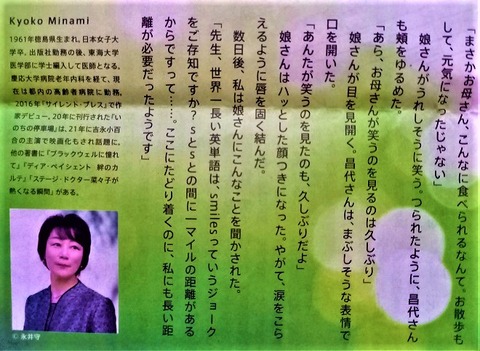 「まさかお母さん、こんなに食べられるなんて。お散歩も
して、元気になったじゃない」
娘さんがうれしそうに笑う。つられたように、昌代さん
も頬をゆるめた。
「あら、お母さんが笑うのを見るのは久しぶり」
娘さんが目を見開く。昌代さんは、まぶしそうな表情で
口を開いた。
「あんたが笑うのを見たのも、久しぶりだよ」
娘さんはハッとした顔つきになった。やがて、涙をこら
えるように唇を固く結んだ。
数日後、私は娘さんにこんなことを聞かされた。
「先生、世界一長い英単語は、smilesっていうジョーク
をご存知ですか？sとsとの間に一マイルの距離がある
からですって……。ここにたどり着くのに、私にも長い距
離が必要だったようです」
Kyoko Minami
1961年徳島県生まれ。日本女子大
学卒。出版社勤務の後、東海大学
医学部に学士編入して医師となる。
慶応大学病院老年内科を経て、現
在は都内の高齢者病院に勤務。
2016年「サイレント・ブレス」で作
家デビュー。20年に刊行された「い
のちの停車場」は、21年に吉永小百
合の主演で映画化もされ話題に。
他の著書に「ブラックウェルに憧れ
て」「ディア・ペイシェント 絆のカ
ルテ」「ステージ・ドクター菜々子が
熱くなる瞬間」がある。
© 永井守